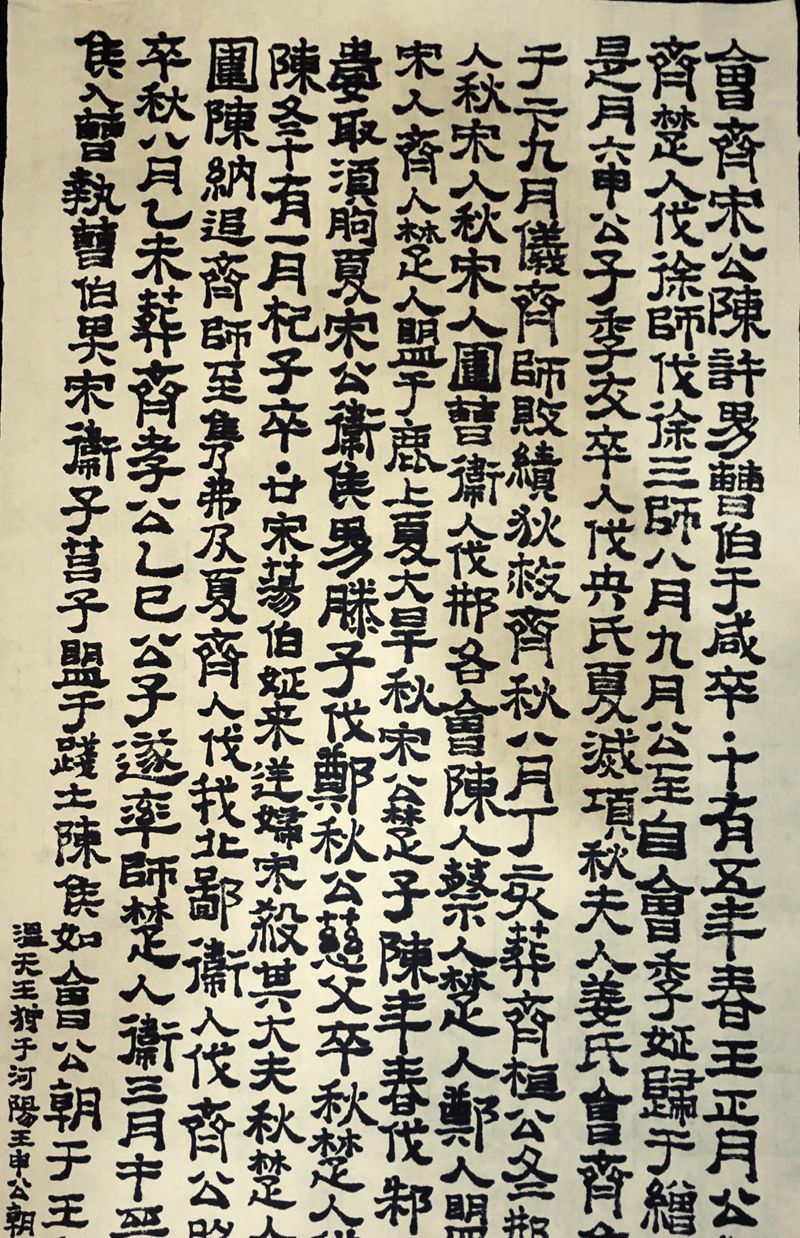 會齊宋公陳許男曹伯于咸卒·十有五年春王正月公
齊楚人伐徐師伐徐三師八月九月公至自會季姬歸于繒
是月六申公子季友卒·人伐英氏夏滅項秋夫人姜氏會齊
于下九月儀齊師敗績狄救齊秋八月丁亥葬齊桓公冬邢
人秋宋人秋宋人圍曹衛人伐邢各會陳人蔡人楚人鄭人盟
宋人齊人楚人盟于鹿上夏大旱秋宋公楚子陳年春伐邾
婁取須朐夏宋公衛侯男滕子伐鄭秋公慈父卒秋楚人
陳冬十有一月杞子卒·廿宋蕩伯姬来逆婦宋殺其大夫秋楚人
圍陳納追齊師至雋弗及夏齊人伐我北鄙衛人伐齊公
卒秋八月乙未葬齊孝公乙巳公子遂率師楚人衛三月
侯入曹執曹伯畀宋衛子莒子盟于踐土陳侯如會公朝于王
溫天王狩于河陽壬申公朝